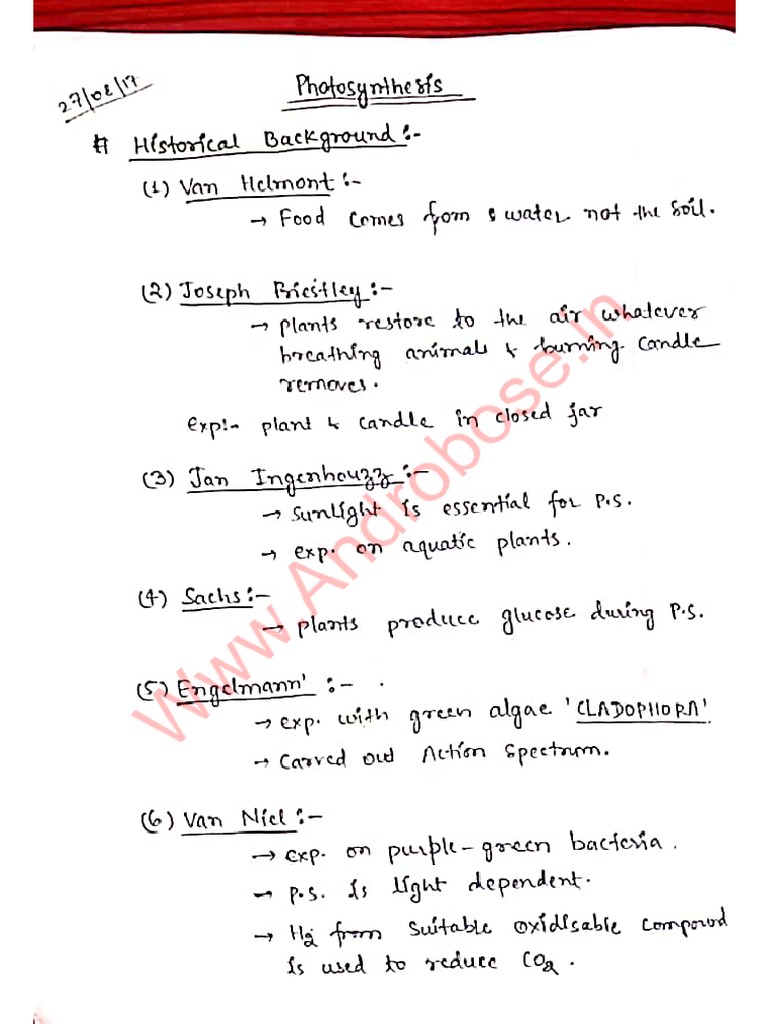 27/08/17
Photosynthesis
# Historical Background:-
(1) Van Helmont:-
→ Food comes from water not the soil.
(2) Joseph Priestley:-
→ plants restore to the air whatever
breathing animals & burning candle
removes.
exp:- plant & candle in closed jar
(3) Jan Ingenhouzz:-
→ sunlight is essential for P.S.
→ exp. on aquatic plants.
(4) Sachs:-
→ plants produce glucose during P.S.
(5) Engelmann' :-
→ exp. with green algae 'CLADOPHORA'
→ Carved out Action Spectrum.
(6) Van Niel:-
→ exp. on purple-green bacteria.
→ P.S. is light dependent.
→ H2 from suitable oxidisable compound
is used to reduce CO2.
Www.Androbose.in